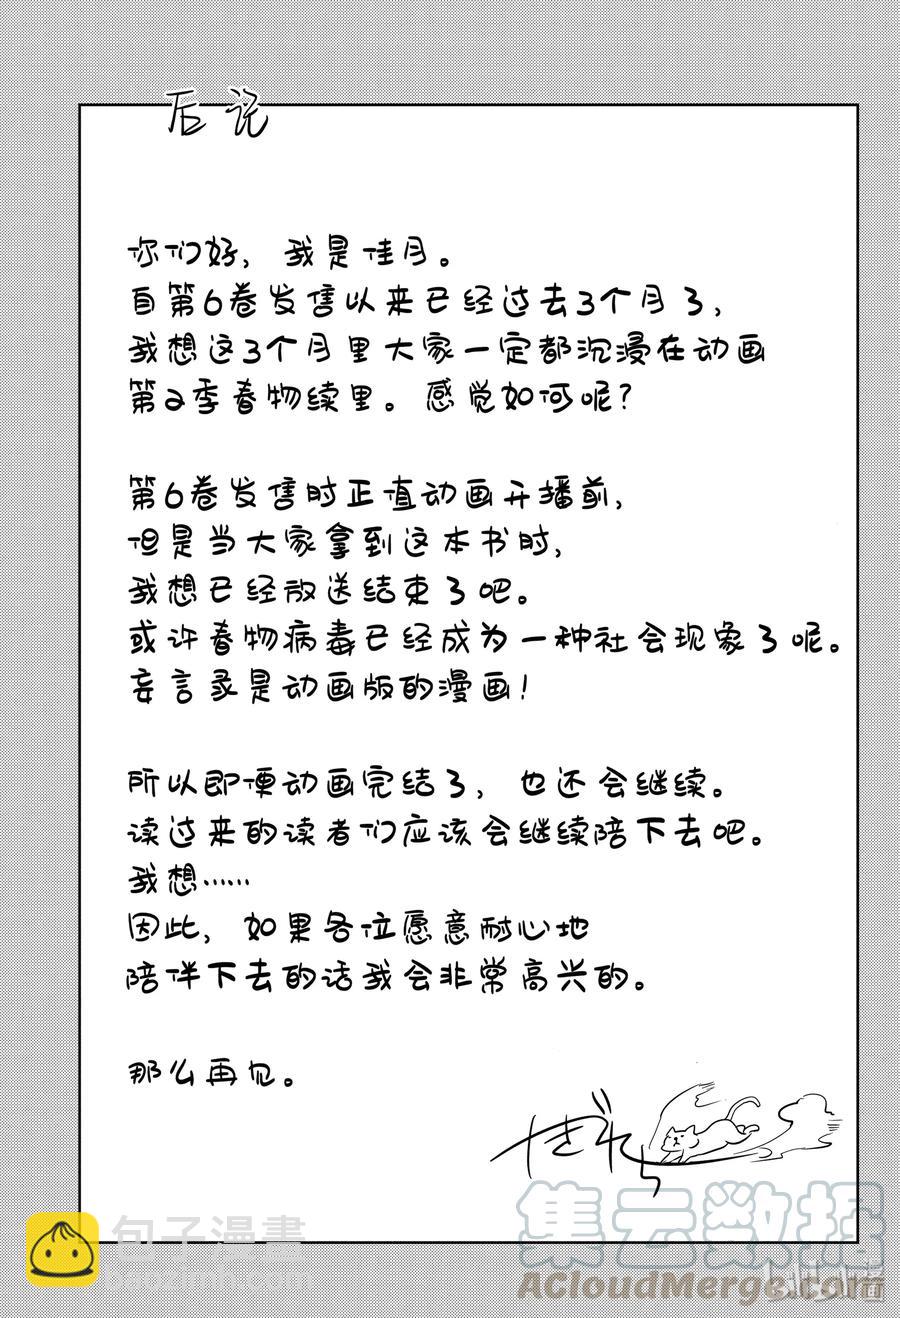 后记
你们好，我是佳月。
自第6卷发售以来已经过去3个月了，
我想这3个月里大家一定都沉浸在动画
第2季春物续里。感觉如何呢？
第6卷发售时正值动画开播前，
但是当大家拿到这本书时，
我想已经放送结束了吧。
或许春物病毒已经成为一种社会现象了呢。
妄言录是动画版的漫画！
所以即便动画完结了，也还会继续。
读过来的读者们应该会继续陪下去吧。
我想……
因此，如果各位愿意耐心地
陪伴下去的话我会非常高兴的。
那么再见。
集云数据
ACloudMerge.com
包子漫畫
baozimh.com